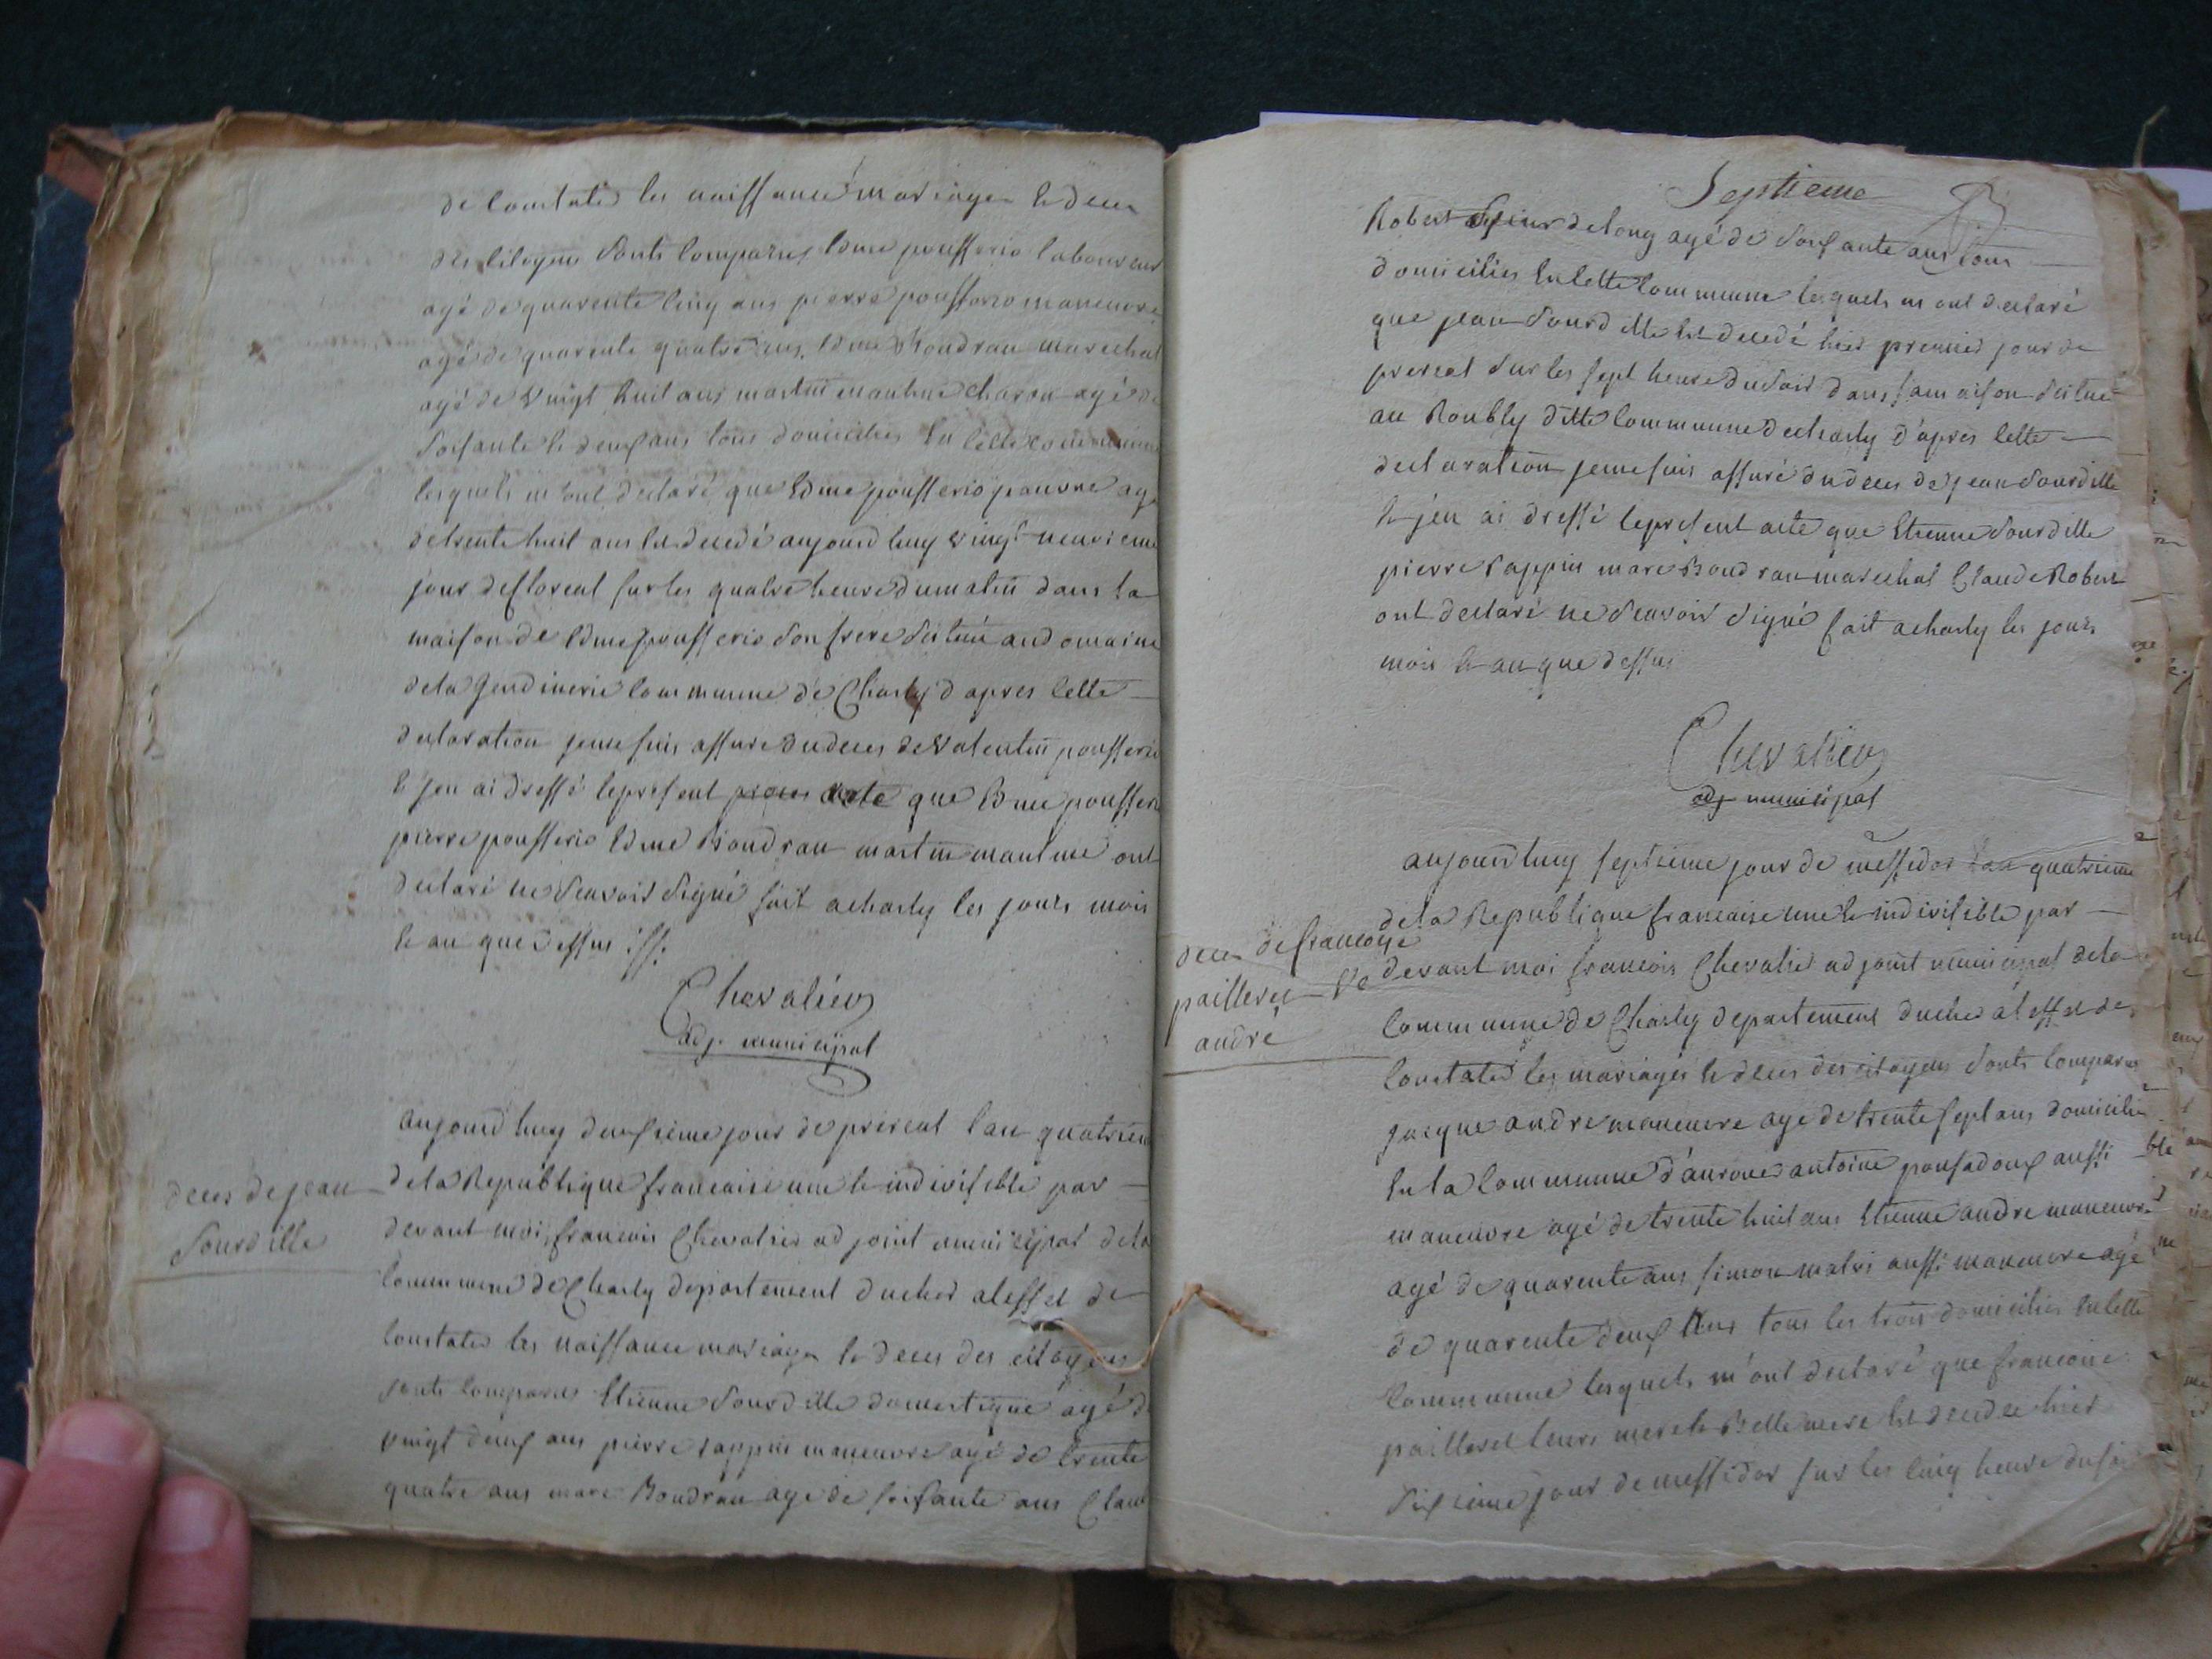 de Constater les naissance mariage et deces
des citoyens sonts comparus Edme pousserio laboureur
agé de quarente cinq ans pierre pousserio maneuvre
agé de quarente quatre ans, Edme Boudran marechal
agé de vingt huit ans martin mautme charon agé de
soisante et deux ans tous domicilies En cette commune
lesquels mont declaré que Edme pousserio pauvre agé
de trente huit ans Est decedé aujourd huy vingt neuvieme
jour de floreal sur les quatre heure du matin dans la
maison de Edme pousserio son frere scitué au domaine
de la Jendinerie commune de Charly d apres cette
declaration je me suis assuré du deces de valentin pousserio
et jen ai dressé le present acte que Edme pousserio
pierre pousserio Edme Boudran martin mautme ont
declaré ne scavoir signé fait a charly les jours mois
et an que dessus
Chevalier
adj. municipal
aujourd huy deuxsieme jour de prereal l an quatrieme
deces de jean
sourdille
de la Republique francaise une et indivisible par
devant moi francois Chevalier ad joint municipal de la
commune de Charly departement du cher a leffet de
constater les naissance mariage et deces des citoyens
sonts comparus Etienne sourdille domestique agé de
vingt deux ans pierre rappin maneuvre agé de trente
quatre ans marc Boudran agé de soisante ans Claude
Septieme
Robert delong agé de soisante ans tous
domicilies En cette commune lesquels m ont declaré
que jean sourdille Est decedé hier premier jour de
prereal sur les sept heure du soir dans sa maison scitué
au Roubly ditte commune de charly d'apres cette
declaration je me suis assuré du deces de jean sourdille
et jen ai dressé le present acte que Etienne sourdille
pierre rappin marc Boudran marechal Claude Robert
ont declaré ne scavoir signé fait a charly les jours
mois et an que dessus
Chevalier
adj municipal
aujourd huy septieme jour de messidor lan quatrieme
de la Republique francaise une et indivisible par
deces de francoise
pailleret Ve
andré
devant moi francois Chevalier ad joint municipal de la
commune de Charly departement du cher a l effet de
constater les mariages et deces des citoyens sonts comparus
jacque andre maneuvre age de trente sept ans domicilié
En la commune d'auroue antoine pousadoux aussi
maneuvre agé de trente huit ans Etienne andre maneuvre
agé de quarente ans simon matri aussi maneuvre agé
de quarente deux ans tous les trois domicilies En cette
commune lesquels m'ont declaré que francoise
pailleret leurs mere et Belle mere Est decedee hier
sixsieme jour de messidor sur les cinq heure du soir